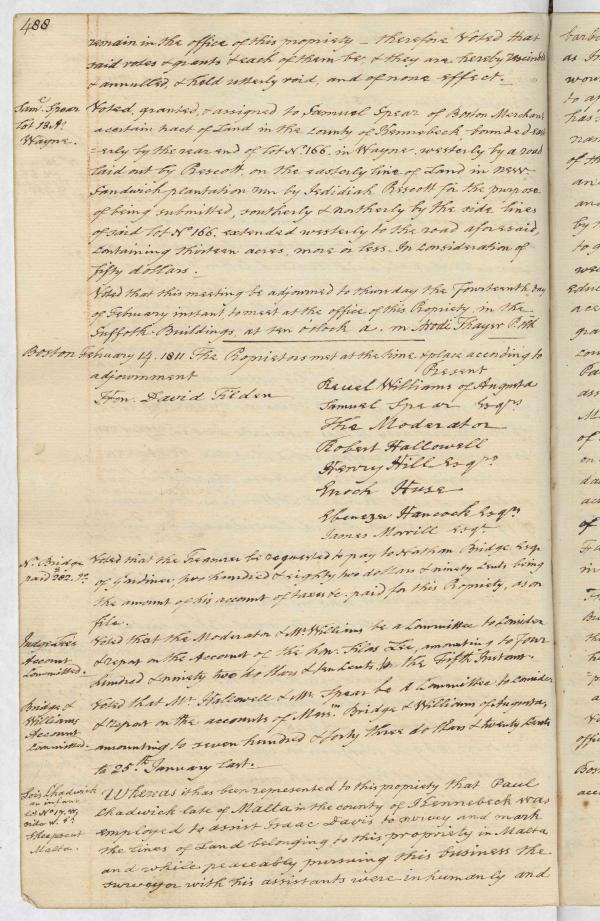 488
remain in the office of this propriety - therefore Voted that
said votes & grants & each of them be, & they are, hereby rescinded
& annulled, & held utterly void, and of none effect.
Saml. Spear
lot 13 As
Wayne.
Voted, granted, & assigned to Samuel Spear of Boston Merchant,
a certain tract of Land in the county of Kennebeck bounded eas
=erly by the rear end of lot No. 166. in Wayne, westerly by a road
laid out by Prescott, on the easterly line of Land in new
Sandwich plantation run by Jedidiah Prescott for the purpose
of being submitted, southerly & northerly by the side lines
of said lot No 166. extended westerly to the road aforesaid,
containing thirteen acres, more or less. In consideration of
fifty dollars.
Voted that this meeting be adjourned to thursday the Fourteenth day
of February instant to meet at the office of this Propriety, in the
Suffolk Buildings, at ten o'clock a. m Arodi Thayer P. Clk
Boston February 14. 1811. The Proprietors met at the time & place according to
adjournment
Present
Hon. David Tilden
Reuel Williams of Augusta
Samuel Spear Esqrs
The Moderator
Robert Hallowell
Henry Hill Esqrs
Enoch Huse
Ebenezer Hancock Esqrs
James Morrill Esqr
N. Bridge
paid 282.90
Voted that the Treasurer be requested to pay to Nathan Bridge Esqr
of Gardiner, two hundred & eighty two dollars & ninety Cents, being
the amount of his account of taxes &c. paid for this Propriety, as on
file.
Judge Lee's
Account
Committed.
Voted that the Moderator & Mr Williams be a Committee to Consider
& report on the Account of the Hon. Silas Lee, amounting to Four
hundred & ninety two dollars & ten Cents, to the Fifth Instant.
Bridge &
Williams
Account
Committed.
Voted that Mr. Hallowell & Mr. Spear be a Committee to Consider
& report on the accounts of Bridge & Williams of Augusta,
amounting to seven hundred & forty three dollars & twenty Cents
to 25th January last.
Lois Chadwick
an infant
lot No 17. W,
side W. of
Sheepscut
Malta.
Whereas it has been represented to this propriety that Paul
Chadwick late of Malta in the county of Kennebeck was
employed to assist Isaac Davis to survey and mark
the lines of Land belonging to this propriety in Malta
and while peaceably pursuing this business the
surveyor with his assistants were inhumanly and